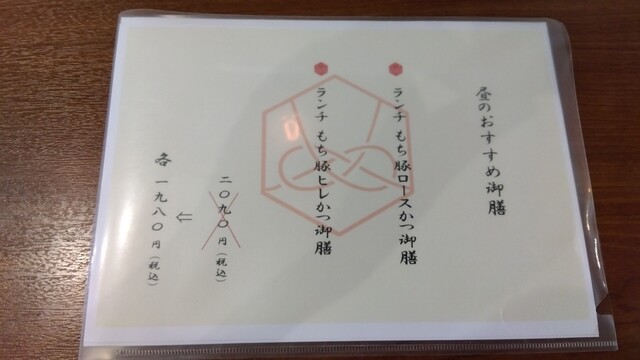 昼のおすすめ御膳
ランチ もち豚ロースかつ御膳
ランチ もち豚ヒレかつ御膳
二〇九〇円(税込)
⇐
各 一九八〇円(税込)